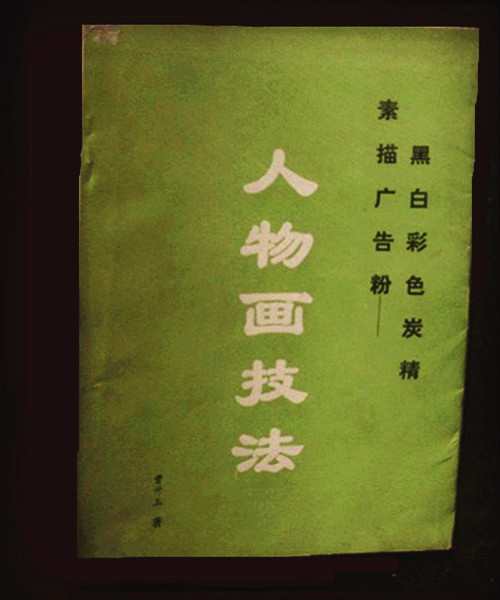 黑白彩色炭精
素描广告粉
人物画技法
著